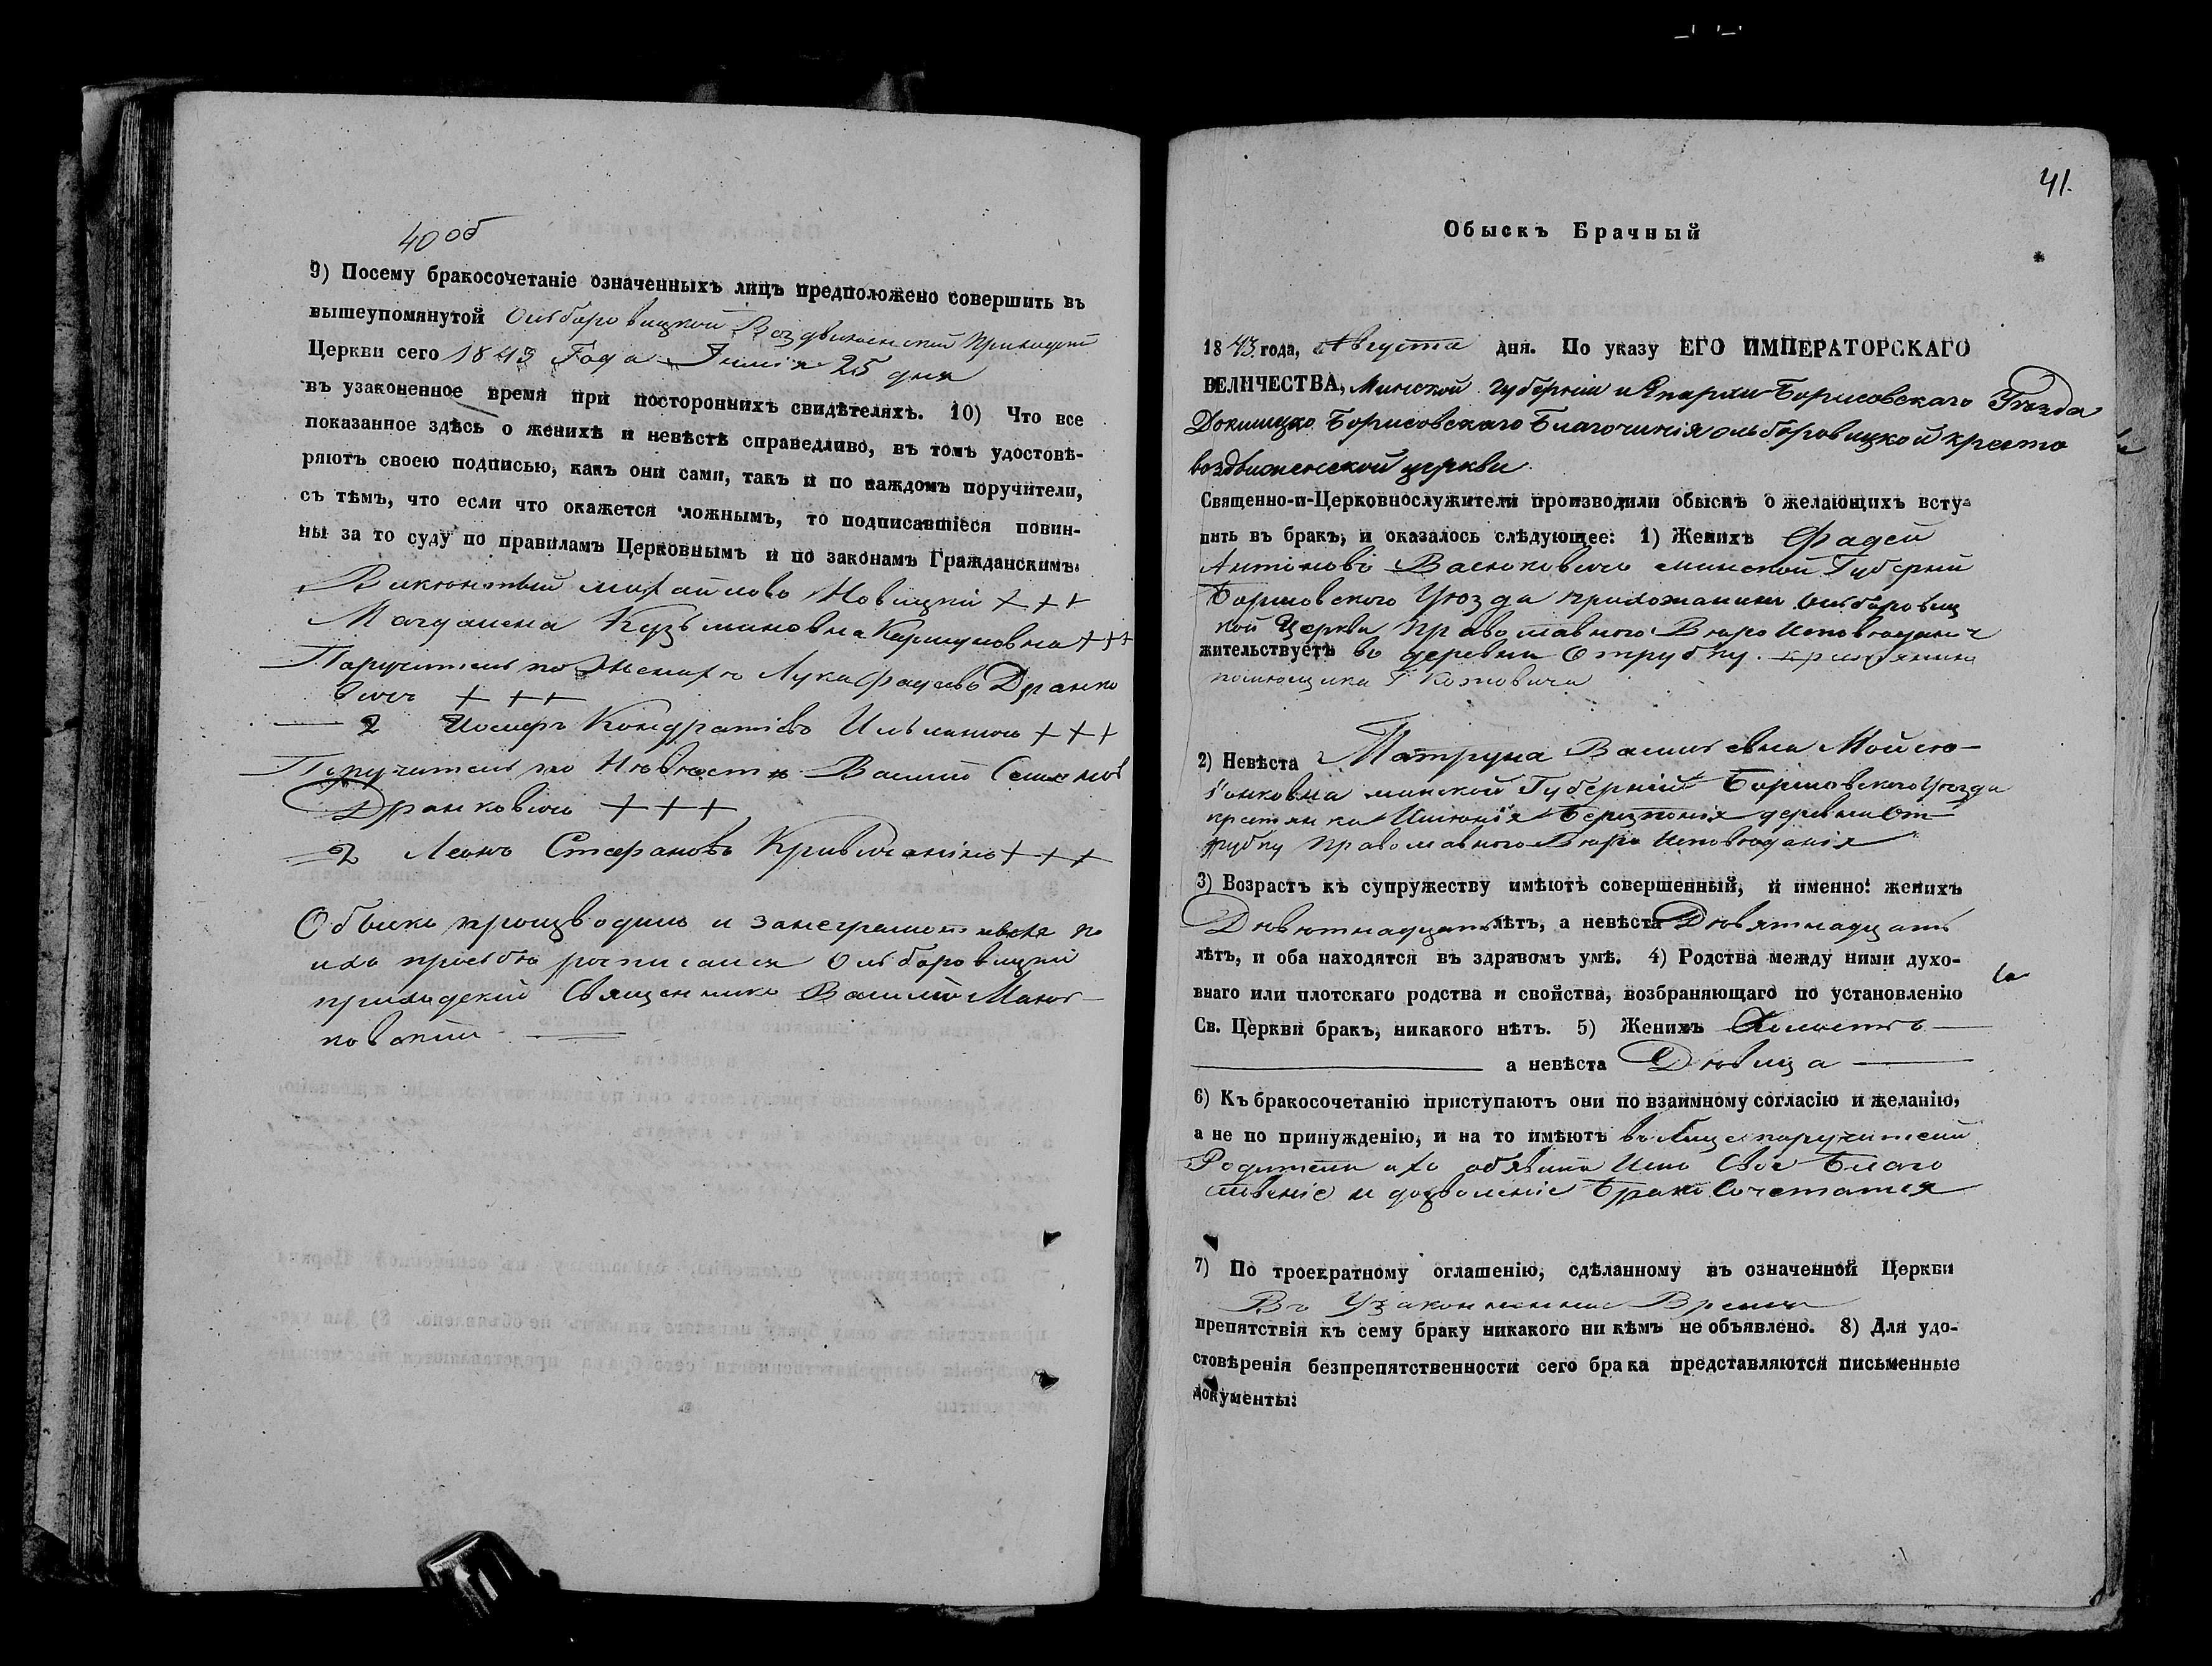 40 об
9) Посему бракосочетаніе означенныхъ лицъ предположено совершить въ
вышеупомянутой Ольборовицкой Воздвиженской Приходской
Церкви сего 1843 Года 25 дня
въ узаконенное время при постороннихъ свидѣтеляхъ. 10) Что все
показанное здѣсь о женихѣ и невѣстѣ справедливо, въ томъ удостовѣ-
ряютъ своею подписью, какъ они сами, такъ и по каждомъ поручители,
съ тѣмъ, что если что окажется ложнымъ, то подписавшіеся повин-
ны за то суду по правиламъ Церковнымъ и по законамъ Гражданскимъ.
Викентый Михайловъ Новицкій + + +
Магдалена Кузьминовна + + +
Поручители по Женихѣ Лука Фадеевъ Дранко
вичъ + + +
2 Іосифъ Кондратіевъ + + +
Поручители по Нювюстю Василій Семеновъ
Дранковичъ + + +
2 Леонъ Стефановъ Кривичанинъ + + +
Обыскъ производилъ и по
ихъ прозьбю росписался Ольборовицкій
приходскій Священникъ Василій
41.
Обыскъ Брачный
1843 года, Августа дня. По указу ЕГО ИМПЕРАТОРСКАГО
ВЕЛИЧЕСТВА, Минской губерніи и Епархіи Борисовскаго Уѣзда
Докшицко Борисовскаго Благочинія Ольборовицкой кресто
воздвиженской церкви
Священно-и-Церковнослужители производили обыскъ о желающихъ всту-
пить въ бракъ, и оказалось слѣдующее: 1) Женихъ Фадей
Антоновъ Васюковичъ минской Губерній
Борисовского Уюзда прихожанинъ Ольборовиц
кой Церкви Православного Вюро
жительствуетъ во деревни Отрубку. крестянинъ
помющика Г
2) Невѣста Матруна Васильевна Мойсю-
ёнковна минской Губерній Борисовского Уюзда
крестянка Имюнія деревни От
рубку Православного Вюро Исповюданія
3) Возрастъ къ супружеству имѣютъ совершенный, и именно: женихъ
Дювютнадцать лѣтъ, а невѣста Дювятнадцать
лѣтъ, и оба находятся въ здравомъ умѣ. 4) Родства между ними духо-
внаго или плотскаго родства и свойства, возбраняющаго по установленію
Св. Церкви бракъ, никакого нѣтъ. 5) Женихъ Холостъ
а невѣста Дювица
6) Къ бракосочетанію приступаютъ они по взаимному согласію и желанію,
а не по принужденію, и на то имѣютъ въ Лице поручителей
Родители ихъ Свое Благо
словеніе и дозволеніе Брако Сочетатися
7) По троекратному оглашенію, сдѣланному въ означенной Церкви
Въ Узаконенное Время
препятствія къ сему браку никакого ни кѣмъ не объявлено. 8) Для удо-
стовѣренія безпрепятственности сего брака представляются письменные
документы: